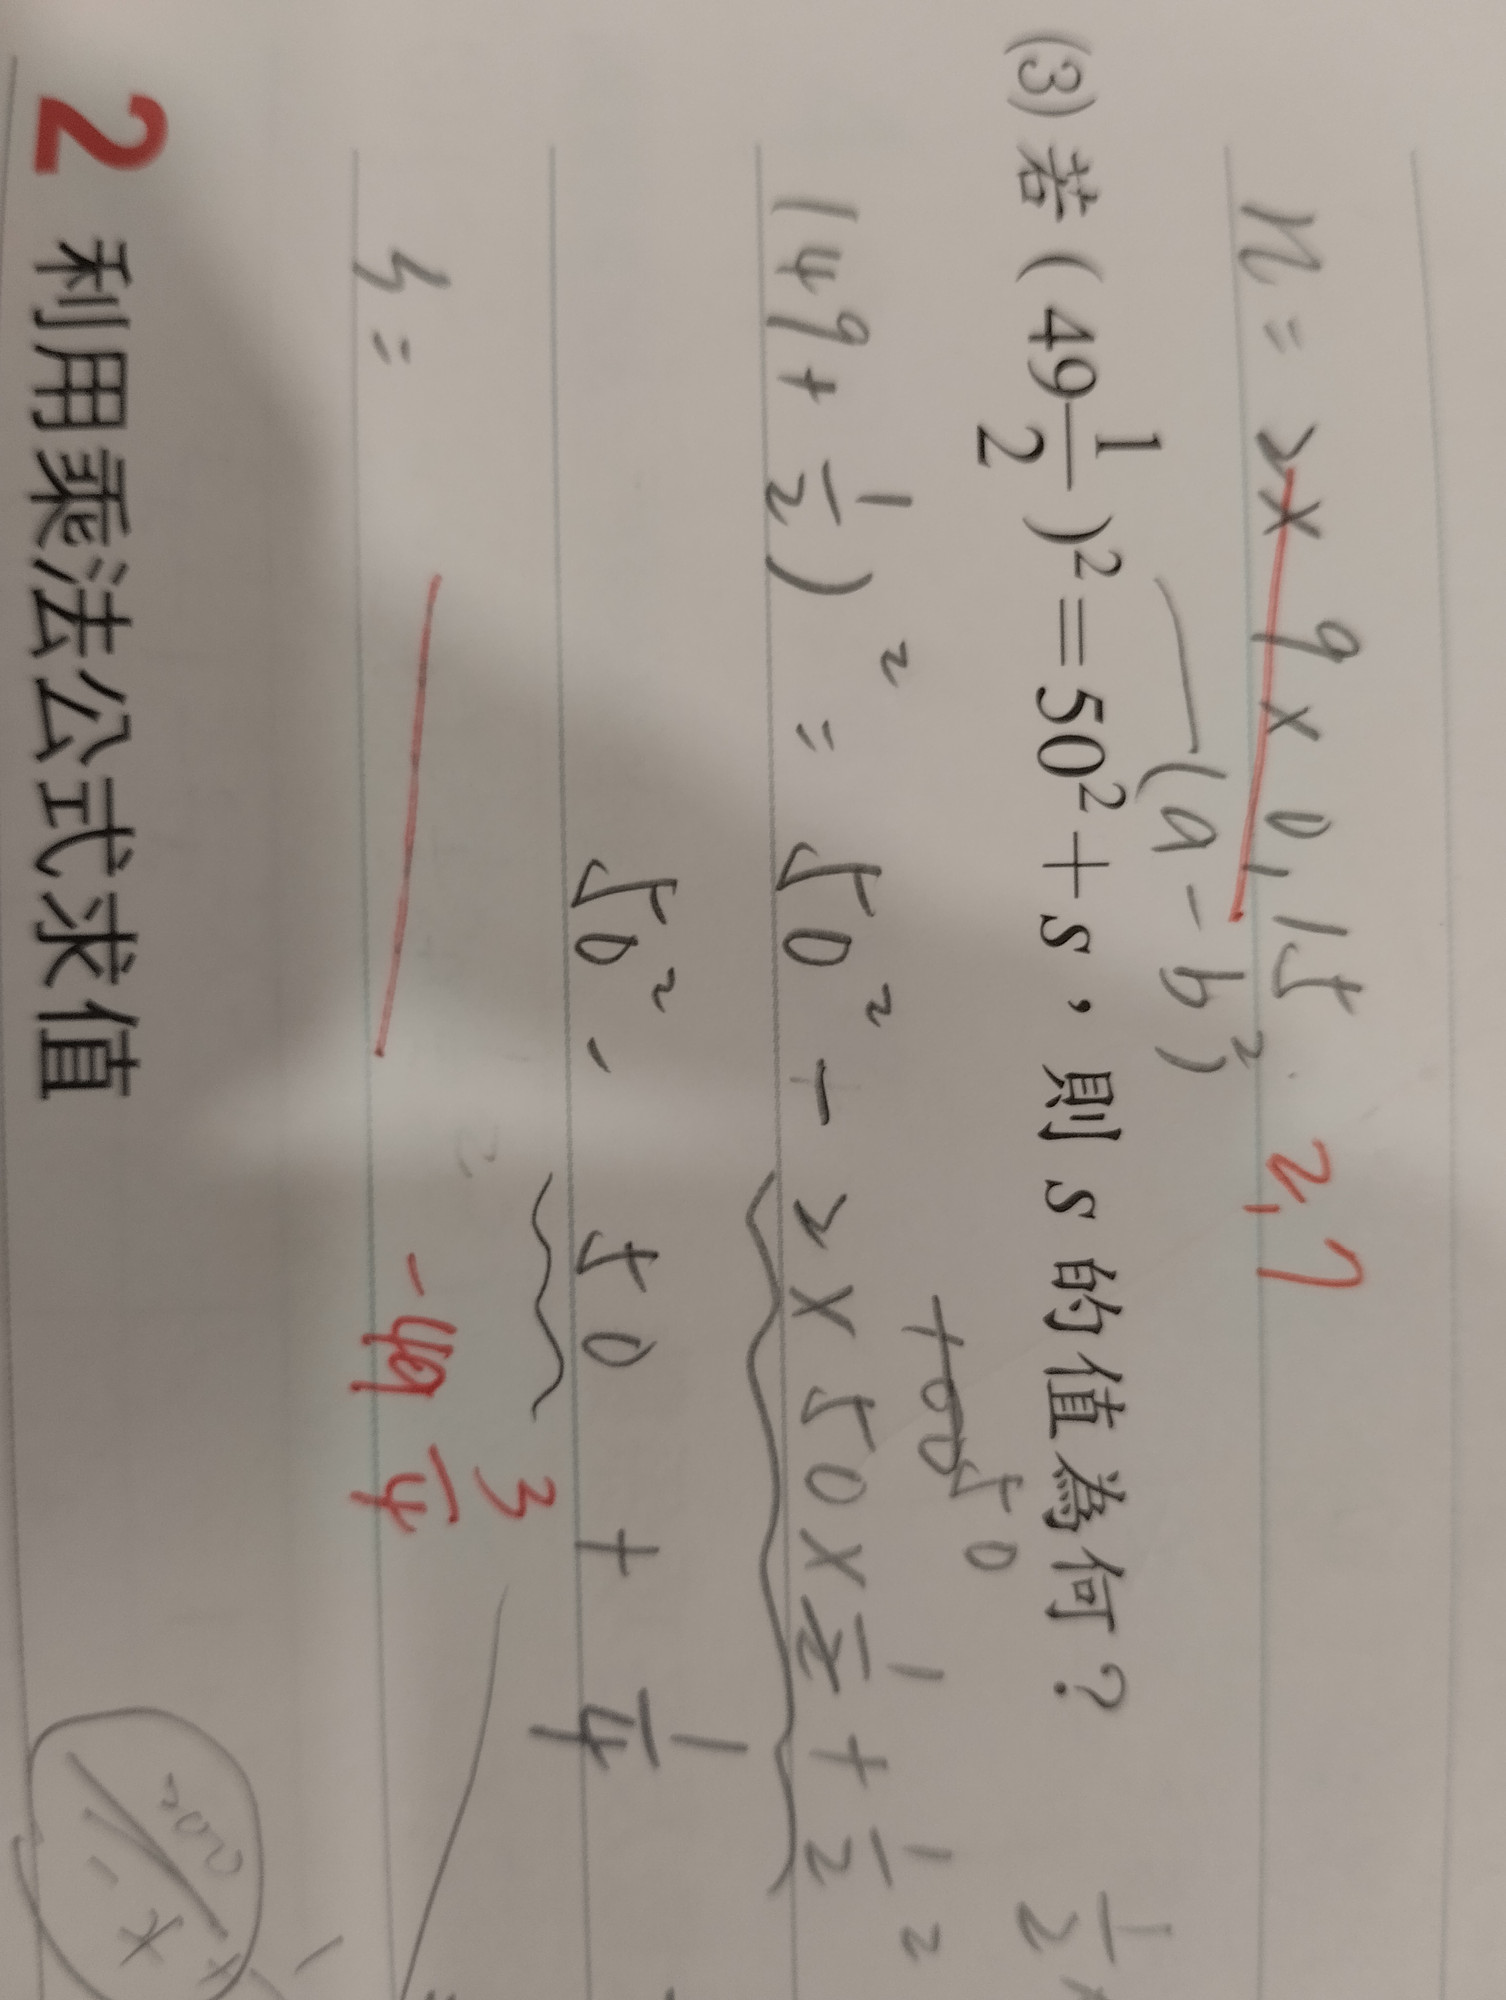 n = 2×9×0.15 2.7
(a-b)²
(3) 若 (49 1/2)² = 50² + s，則 s 的值為何？
50
(49+1/2)² = 50² - 2×50×1/2 + 1/2²
50² - 50 + 1/4
s = -49 3/4
2 利用乘法公式求值